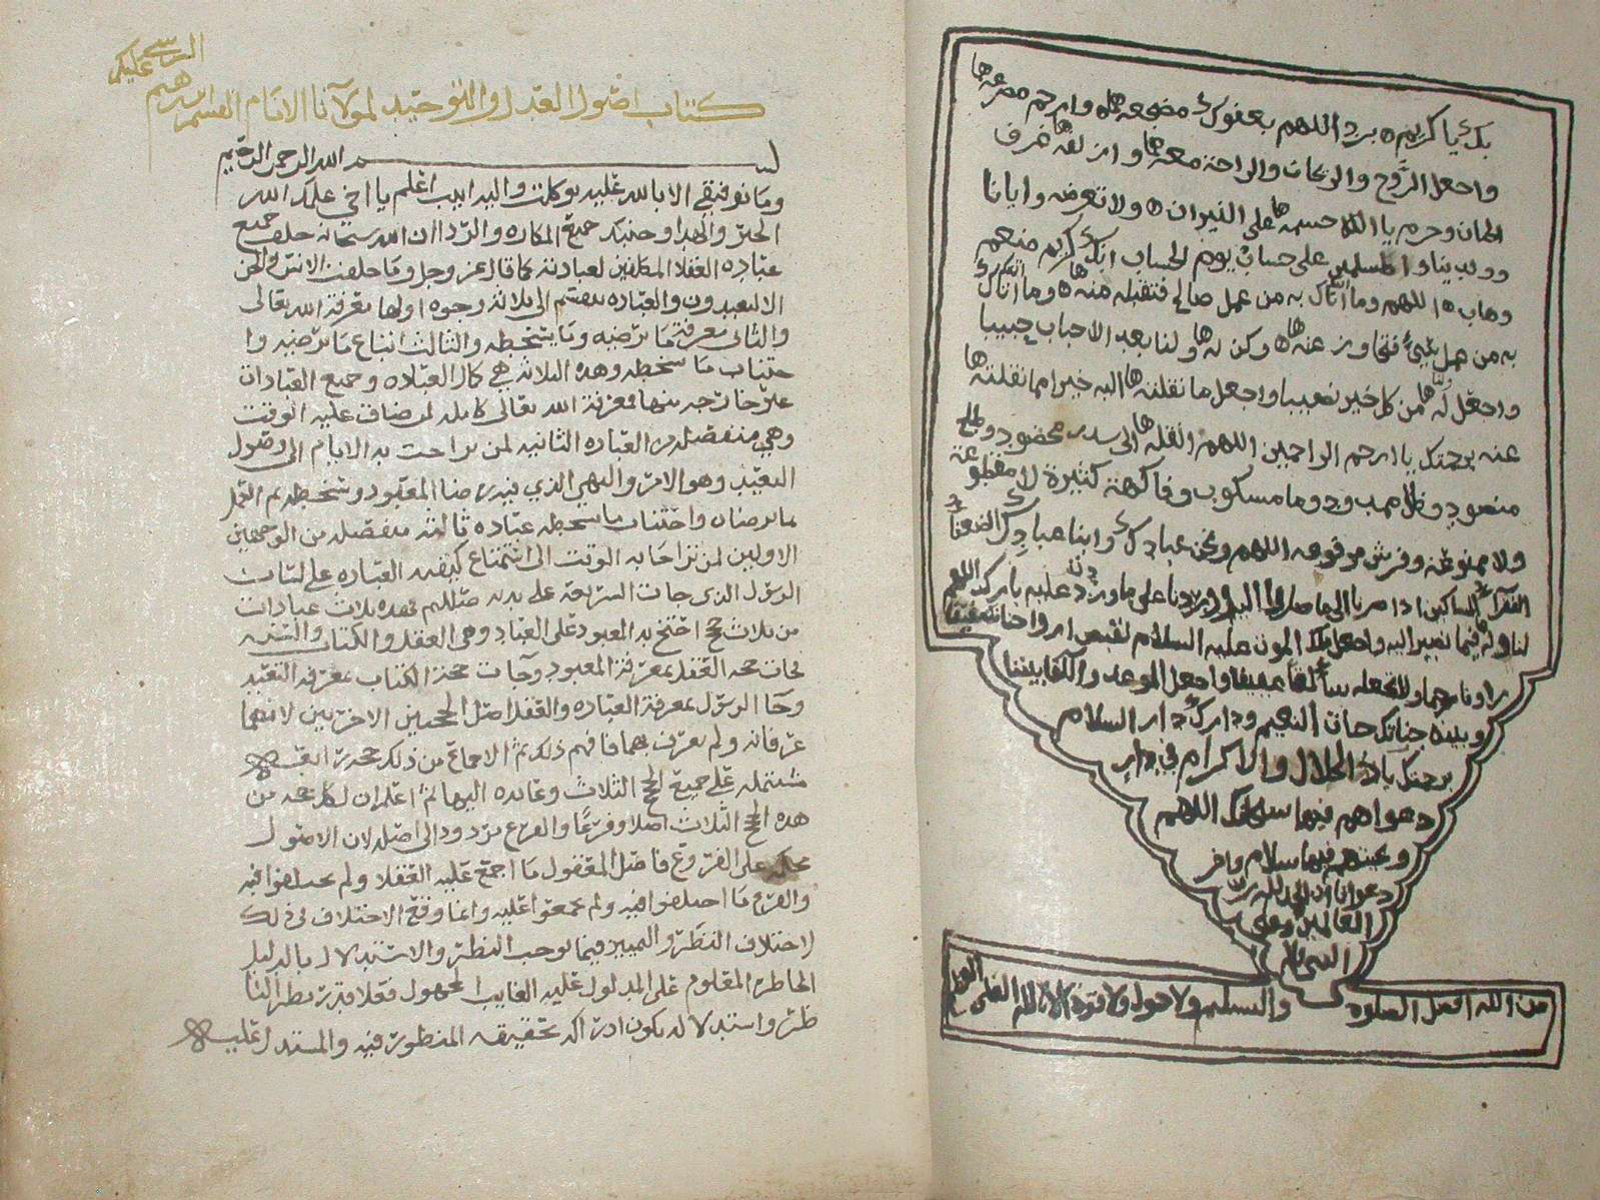 بك يا كريم ه برد اللهم بعفوك مضجعها وارحم مصرعها
واجعل الروح والريحان والراحة معها وازلفها غرف
الجنان وحرم يا الله جسمها على النيران ه ولا تعرضه وايانا
ووالدينا والمسلمين على حساب يوم الحساب انك كريم منعم
وهاب ه اللهم وما اتاك به من عمل صالح فتقبله منه ها وما اتاك
به من عمل سيئ فتجاوز عنه ها ه وكن له ها ولنا بعد الاحباب حبيبا
واجعل له ها من كل خير نصيبا واجعل ما نقلته ها اليه خير مما نقلته ها
عنه برحمتك يا ارحم الراحمين اللهم انقله ها الى سدر مخضود وطلح
منضود وظل ممدود وما مسكوب وفاكهة كثيرة لا مقطوعة
ولا ممنوعة وفرش مرفوعة اللهم ونحن عبادك وابنا عبادك الضعفا
الفقرا المساكين اذا صرنا الى ما صاروا اليه ووردنا على ما وردوا عليه بارك اللهم
لنا وله فيما نصير اليه واجعل ملك الموت عليه السلام لقبض ارواحنا شفيقا
بنا رحيما ولا تجعله سائقا عنيفا واجعل الموعد واللقا بيننا
وبينه جناتك جنات النعيم ودارك دار السلام
برحمتك ياذا الجلال والاكرام في دار
دعواهم فيها سبحانك اللهم
وتحيتهم فيها سلام واخر
دعوانا ان الحمد لله رب
العالمين وعلى
النبي
من الله افضل الصلوة والتسليم ولا حول ولا قوة الا بالله العلي العظيم
كتاب اصول العدل والتوحيد لمولانا الامام القسم ابن ابرهيم
الرسي عليلم
بسم الله الرحمن الرحيم
وما توفيقي الا بالله عليه توكلت واليه انيب اعلم يا اخي علمك الله
الخير والهدا وجنبك جميع المكاره والردا ان الله سبحانه خلق جميع
عباده العقلا المكلفين لعبادته كما قال عز وجل وما خلقت الانس والجن
الا ليعبدون والعباده تنقسم الى ثلاثه وجوه اولها معرفة الله تعالى
والثاني معرفة ما يرضيه وما يسخطه والثالث اتباع ما يرضيه وا
جتناب ما يسخطه وهذه الثلاثه هي كمال العباده وجميع العبادات
غير خارجه منها فمعرفة الله تعالى كامله لمن ضاق عليه الوقت
وهي منفصله من العباده الثانيه لمن تراخت به الايام الى وصول
التعبد وهو الامر والنهي الذي فيه رضا المعبود وسخطه ثم العمل
بما يرضاه واجتناب ما يسخطه عباده ثالثه منفصله من الوجهين
الاولين لمن تراخا به الوقت الى استماع كيفية العباده على لسان
الرسول الذي جات الشريعة على يديه صلى الله عليه فهذه ثلاث عبادات
من ثلاث حجج احتج بها المعبود على العباد وهي العقل والكتاب والسنة
فجات حجة العقل بمعرفة المعبود وجات حجة الكتاب بمعرفة التعبد
وجا الرسول بمعرفة العباده والعقل اصل الحجتين الاخرتين لانهما
عرفا به ولم يعرف بهما فافهم ذلك ثم الاجماع من ذلك حجة رابعة
مشتملة على جميع الحجج الثلاث وعائده اليها ثم اعلم ان لكل حجة من
هذه الحجج الثلاث اصلا وفرعا والفرع مردود الى اصله لان الاصول
محكمه على الفروع فاصل المعقول ما اجمع عليه العقلا ولم يختلفوا فيه
والفرع ما اختلفوا فيه ولم يجمعوا عليه وانما وقع الاختلاف في ذلك
لاختلاف النظر والتمييز فيما يوجب النظر والاستدلال بالدليل
الحاضر المعلوم على المدلول عليه الغايب المجهول فعلى قدر نظر النا
ظر واستدلاله يكون ادراكه لحقيقة المنظور فيه والمستدل عليه